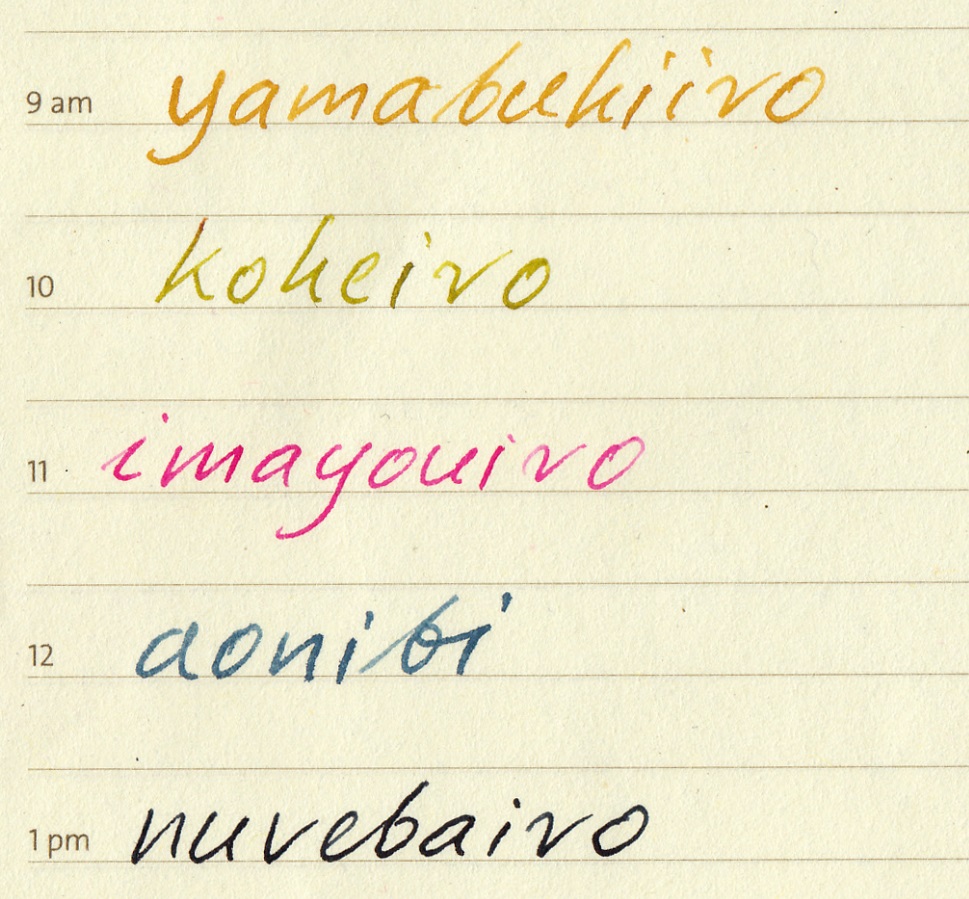 9 am yamabukiiro
10 kokeiro
11 imayouiro
12 aonibi
1 pm nurebairo